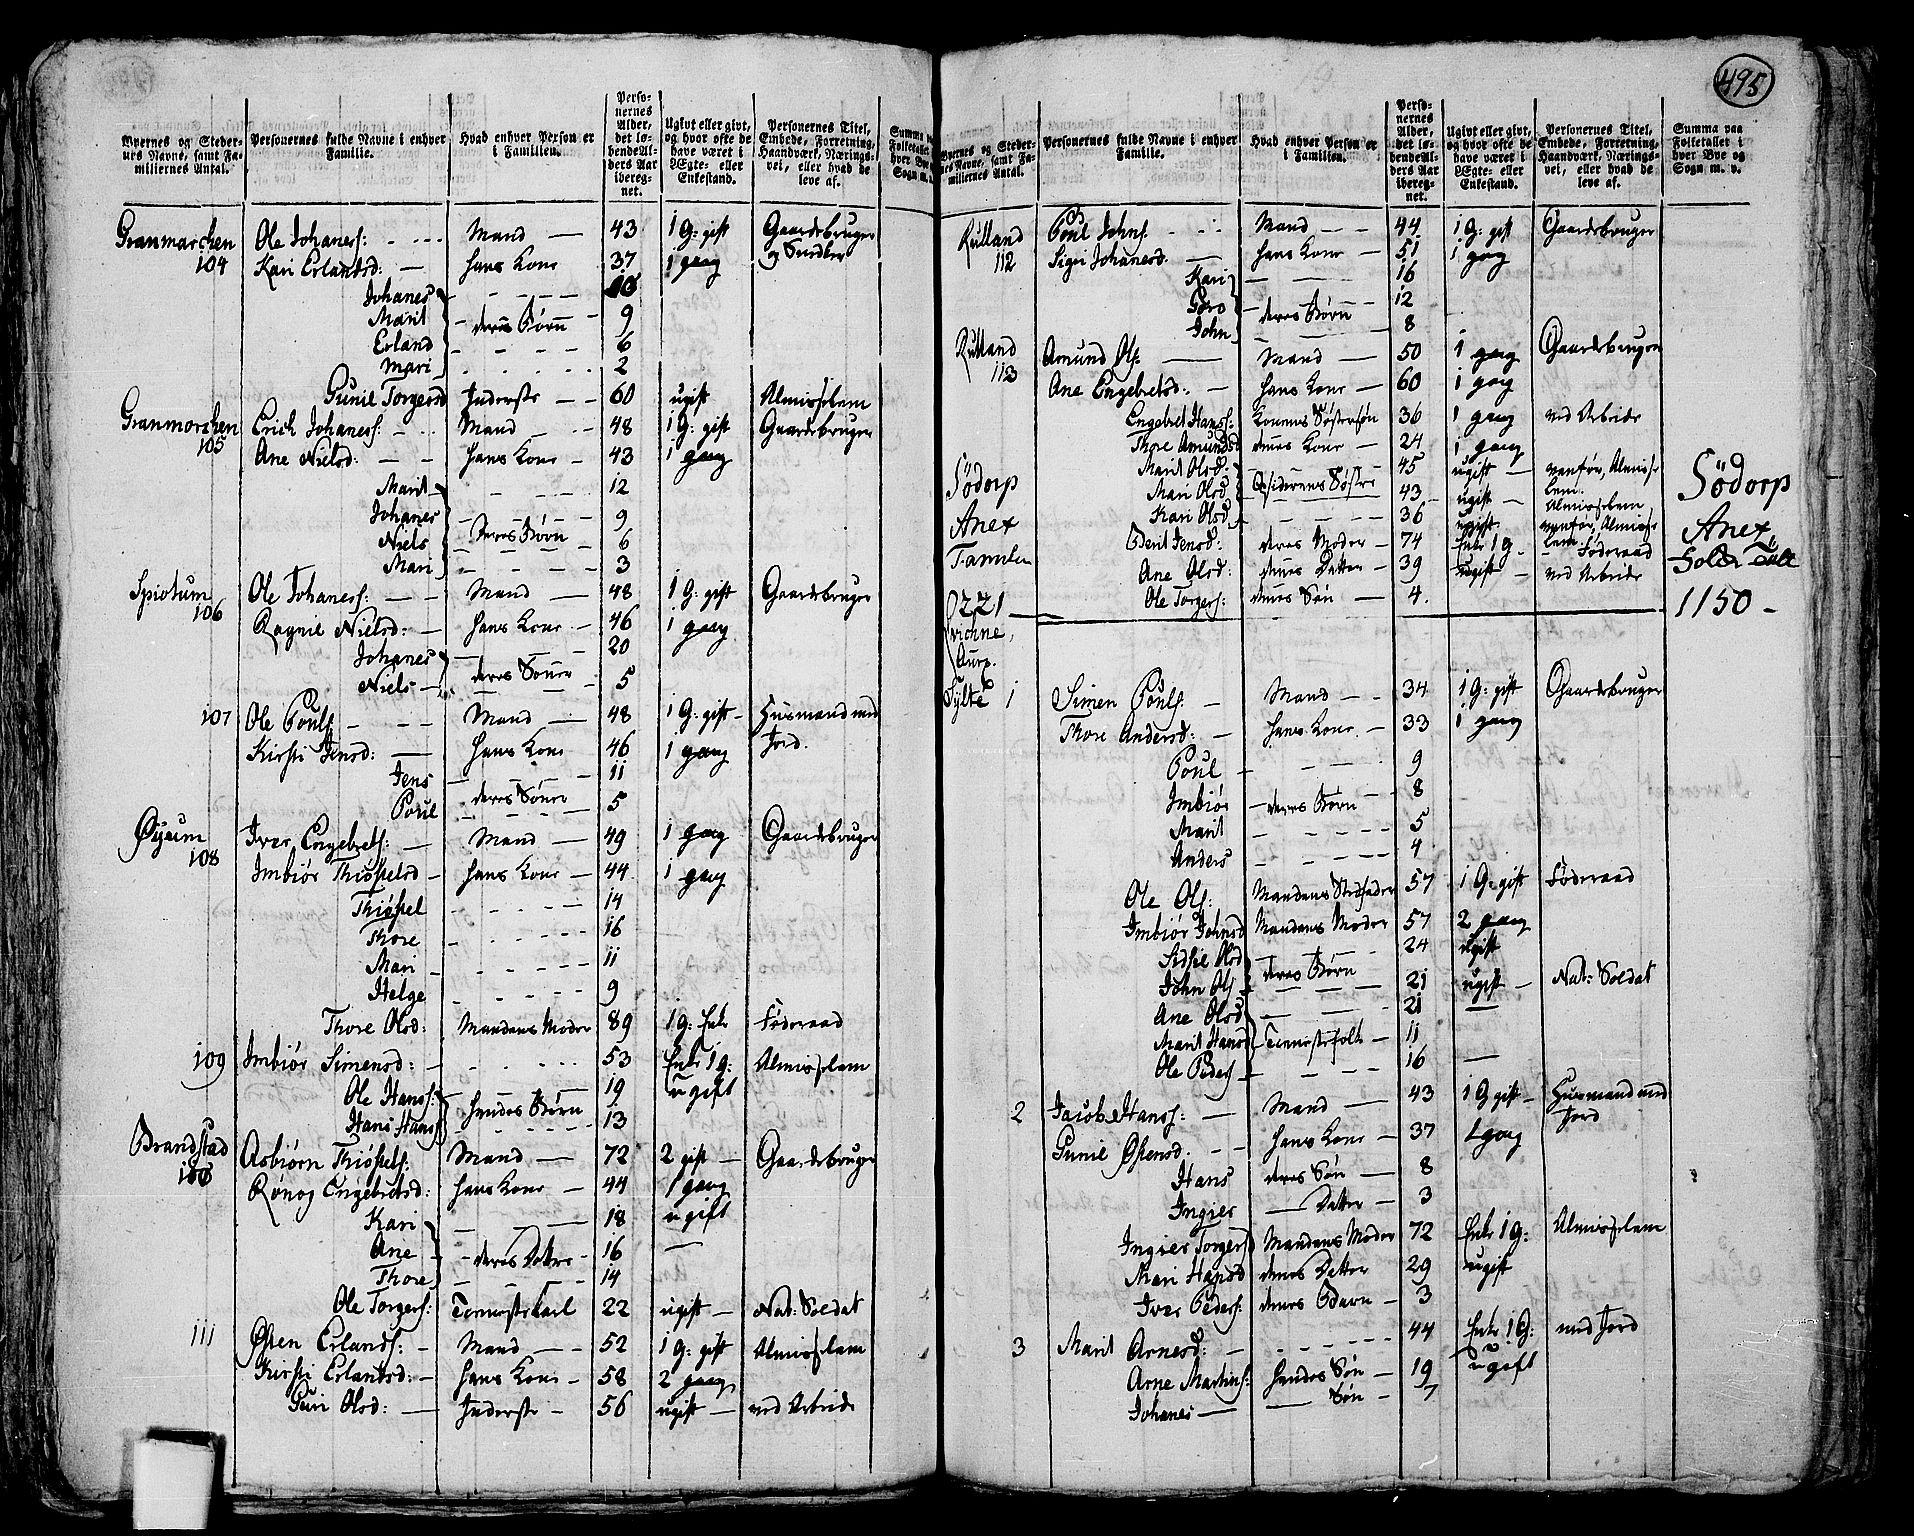 495
Byernes og Steder-
nes Navne, samt Fa-
miliernes Antal.
Personernes fulde Navne i enhver
Familie.
Hvad enhver Person er
i Familien.
Perso-
nernes
Alder,
det lø-
bende Al-
ders Aar
iberegnet.
Ugivt eller givt,
og hvor ofte de
have været i
Ægte- eller
Enkestand.
Personernes Titel,
Embede, Forretning,
Haandværk, Nærings-
vei, eller hvad de
leve af.
Granmarchen 104 Ole Johaness: Mand 43 1 G: gift Gaardsbruger
Kari Erlandsd: hans Kone 37 1 gang
Johanes 10
Marit deres Børn 9
Erland 6
Mari 2
Gunil Torgersd Inderste 60 ugift Almisselem
Granmorchen 105 Erich Johaness: Mand 48 1 G: gift Gaardsbruger
Ane Nielsd: hans Kone 43 1 gang
Marit 12
Johanes 9
Niels deres Børn 6
Mari 3
106 Ole Johaness: Mand 48 1 G: gift Gaardsbruger
Ragnil Nielsd: hans Kone 46 1 gang
Johanes 20
Niels deres Sönner 5
107 Ole Pouls Mand 48 1 G: gift Huusmand med
Kirsti Jensd: hans Kone 46 1 gang Jord.
Jens 11
Poul deres Sönner 5
Øyum 108 Iver Engebrets: Mand 49 1 gang Gaardsbruger
Imbiör Thiöstelsd hans Kone 44 1 gang
Thiöstel 14
Thore 16
Mari 11
Helge 9
Thore Olsd: Mandens Moder 89 1 G: Enke Föderaad
109 Imbiör Simensd: 53 Enke 1 g: Almisselem
Ole Hanss: 19 ugift
Hans Hanss hendes Börn 13
Brandstad Asbiörn Thiöstels: Mand 72 2 gift Gaardsbruger
Rönog Engebretsd: hans Kone 44 1 gang
Kari 18 ugift
Ane deres Døtre 16
Thore 14
Ole Torgers: Tienestekarl 22 ugift Nat: Soldat
111 Østen Erlands: Mand 52 1 G: gift Almisselem
Kirsti Erlandsd: hans Kone 58 2 gang
Guri Olsd: Inderste 56 ugift ved Arbeide
Byernes og Steder-
nes Navne, samt Fa-
miliernes Antal.
Personernes fulde Navne i enhver
Familie.
Hvad enhver Person er
i Familien.
Perso-
nernes
Alder,
det lø-
bende Al-
ders Aar
iberegnet.
Ugivt eller givt,
og hvor ofte de
have været i
Ægte- eller
Enkestand.
Personernes Titel,
Embede, Forretning,
Haandværk, Nærings-
vei, eller hvad de
leve af.
Summa paa
Folketallet i
hver Bye og
Sogn m. v.
Rulland 112 Poul Johns. Mand 44 1 G: gift Gaardsbruger
Sigri Johanesd. hans Kone 51 1 gang
Kari 16
Goro deres Börn 12
John 8
Rulland 113 Amund Ols: Mand 50 1 gang Gaardsbruger
Ane Engebretsd: hans Kone 60 1 gang
Engebret Hanss: Konens Söstersön 36 1 gang ved Arbeide
Thore Amundsd denes Kone 24 1 gang
Marit Olsd: 45 ugift vanför, Almisse
Mari Olsd 43 ugift lem.
Kari Olsd 36 ugift
Berit Jensd: deres Moder 74 Enke 1 g Föderaad
Ane Olsd: denes Datter 39 ugift ved Arbeide
Ole Torgers: denes Sön 4
Södorp
Anex
221
Södorp
Anex
1150
1 Simen Pouls: Mand 34 1 G: gift Gaardsbruger
Thore Andersd: hans Kone 33 1 gang
Poul 9
Imbiör deres Börn 8
Marit 5
Anders 4
Ole Ols: Mandens Stedfader 57 1 G: gift Föderaad
Imbiör Johnsd Mandens Moder 57 2 gang
Sidsil Olsd 24 ugift
John Ols deres Börn 21 ugift Nat: Soldat
Ane Olsd 21
Marit Hansd Tienestefolk 11
Ole Peders 16
2 Jacob Hanss: Mand 43 1 G gift Huusmand med
Gunil Østensd. hans Kone 37 1 gang Jord
Hans deres Sön 8
Ingier Datter 3
Ingier Torgersd Mandens Moder 72 Enke 1 g: Almisselem
Mari Hansd denes Datter 29 ugift
Iver Peders: denes 3
3 Marit Arnesd: 44 Enke 1 G: med Jord
Arne Martins: hendes Sön 19 ugift
Johanes Sön 7